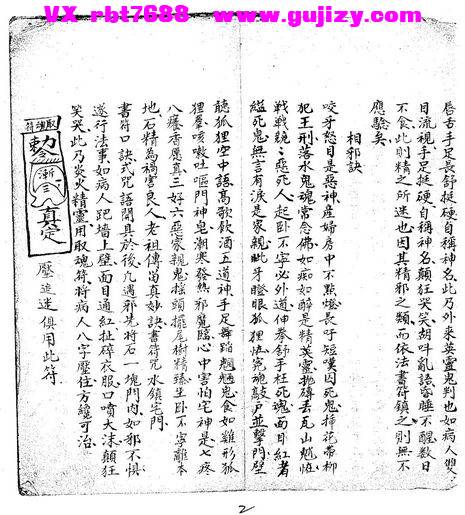 VX-rbt7688 www.gujizy.com
唇舌手足長舒挺硬自稱神名此乃外來英靈鬼判也如病人雙
目流視手足挺硬自稱神名顛狂哭笑胡呌亂語昏睡不醒數日
不食此則精之所迷也因其精邪之類而依法書符鎮之則無不
應驗矣
相邪訣
咬牙怒目是惡神産婦房中不點燈長吁短嘆因死鬼掃花帶柳
犯王刑落水鬼魂常念佛如痴如醉是精英靈拋磚丢瓦山魈怪
戰戰兢兢惡死人起卧不寧必外道伸拳舒手枉死魂面目紅者
縊死鬼無言有淚是家親呲牙瞪眼狐狸怪寃魂敲戸並擊門壁
聽狐狸空中語高歌飲酒五道神手足舞蹈魍魎鬼食如雞形狐
狸屢咳嗽吐嘔門神鬼潮寒發熱邪魔臨心中害怕宅神是七疼
八癢香愿真三好六惡家親鬼摇頭擺尾樹精臻坐卧不寧離本
地石精為禍害良人老祖傳留真妙訣書符咒水鎮宅門
書符口訣式咒語開具於後凡遇邪先將石一塊門内如邪不惧
遂行法事如病人跑墻上壁面目通紅扯碎衣服口噴大沫顛狂
笑哭此乃炎火精靈用取魂符將病人八字壓住方纔可治
取魂符
勅
真定
壓迫迷俱用此符
2